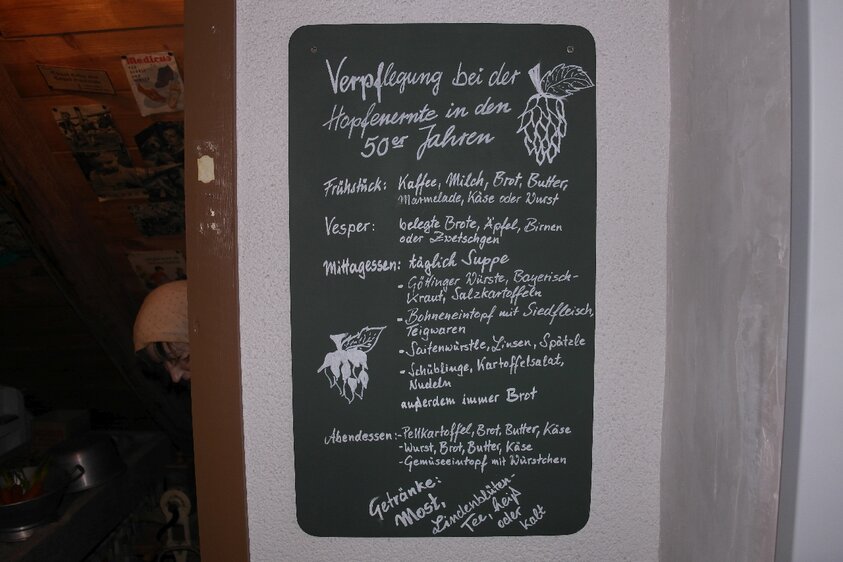 Medicus
Verpflegung bei der
Hopfenernte in den
50er Jahren
Frühstück: Kaffee, Milch, Brot, Butter,
Marmelade, Käse oder Wurst
Vesper: belegte Brote, Äpfel, Birnen
oder Zwetschgen
Mittagessen: täglich Suppe
- Göttinger Würste, Bayerisch-
Kraut, Salzkartoffeln
- Bohneneintopf mit Siedfleisch,
Teigwaren
- Saitenwürstle, Linsen, Spätzle
- Schüblinge, Kartoffelsalat,
Nudeln
außerdem immer Brot
Abendessen: - Pellkartoffel, Brot, Butter, Käse
- Wurst, Brot, Butter, Käse
- Gemüseeintopf mit Würstchen
Getränke:
Most,
Lindenblüten-
Tee, heiß
oder
kalt